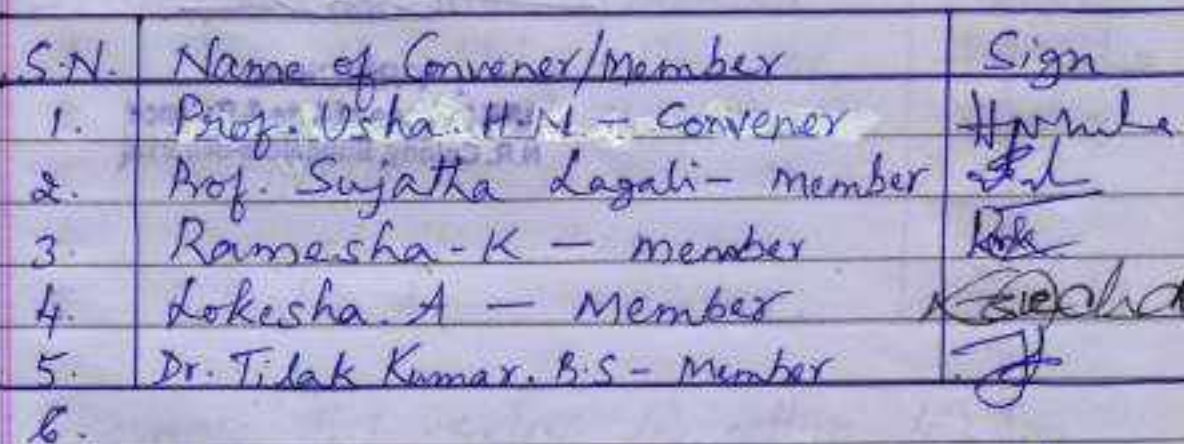 S.N. Name of Convener/Member Sign
1. Prof. Usha. H.N. - Convener
2. Prof. Sujatha Lagali - member
3. Ramesha - K - member
4. Lokesha. A - Member
5. Dr. Tilak Kumar. B.S - Member
6.